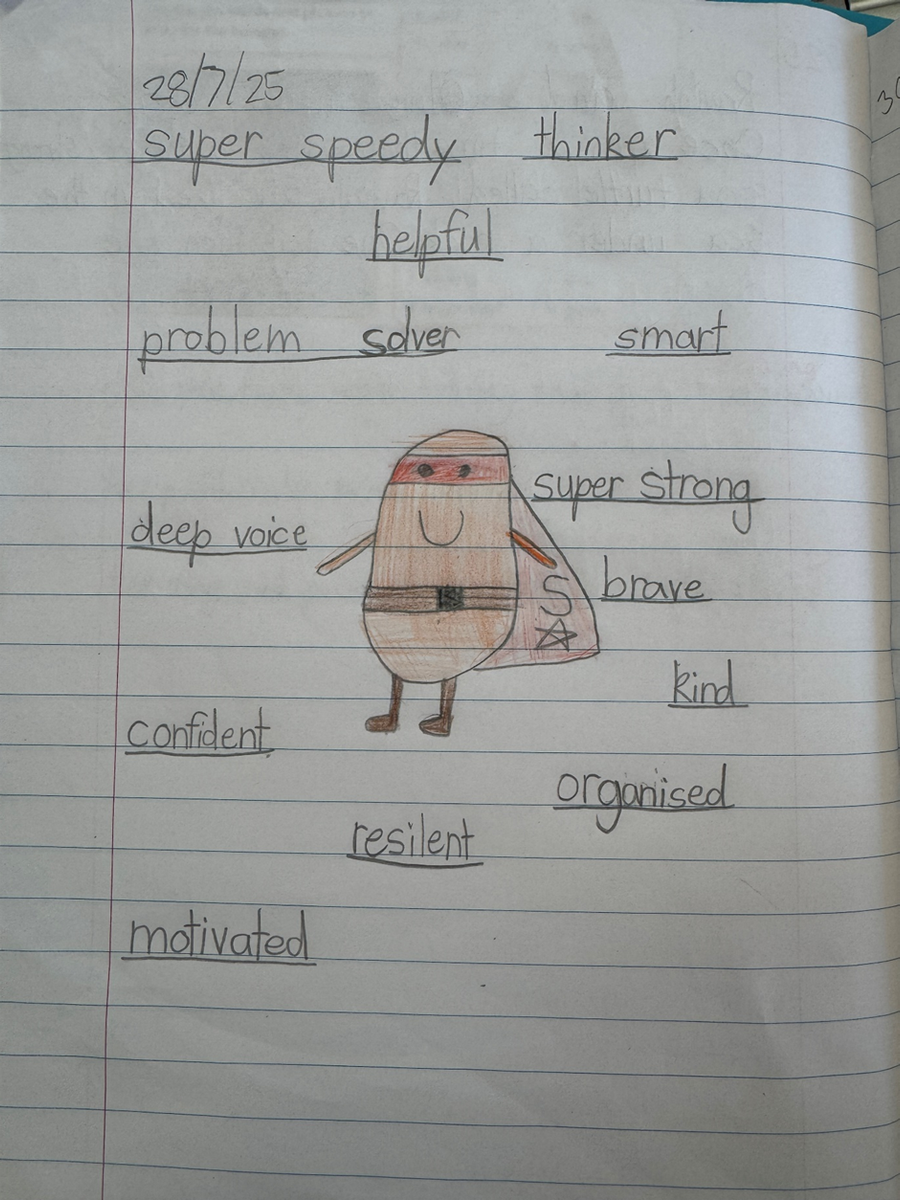 28/7/25
super speedy thinker
helpful
problem solver smart
super strong
deep voice
brave
S
kind
confident
organised
resilent
motivated